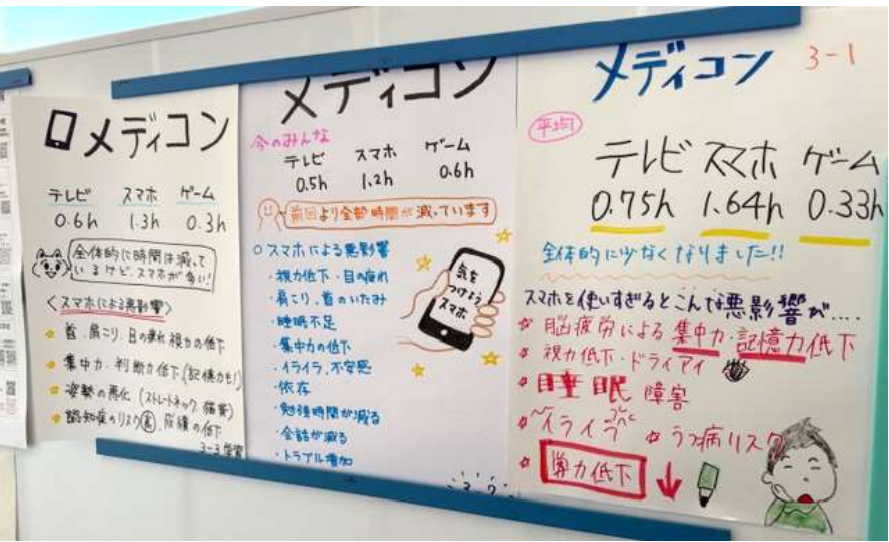 メディコン
テレビ スマホ ゲーム
0.6h 1.3h 0.3h
全体的に時間は減って
いるけど、スマホが多い!
〈スマホによる悪影響〉
首・肩こり、目の疲れ 視力の低下
集中力・判断力低下(記憶力も!)
姿勢の悪化(ストレートネック 猫背)
認知症のリスク高、成績の低下
3-3 学習
メディコン
今のみんな
テレビ スマホ ゲーム
0.5h 1.2h 0.6h
前回より全部時間が減っています
○スマホによる悪影響
・視力低下・目の疲れ
・肩こり、首のいたみ
・睡眠不足
・集中力の低下
・イライラ、不安感
・依存
・勉強時間が減る
・会話が減る
・トラブル増加
気を
つけよう
スマホ
メディコン 3-1
平均
テレビ スマホ ゲーム
0.75h 1.64h 0.33h
全体的に少なくなりました!!
スマホを使いすぎるとこんな悪影響が....
脳疲労による集中力・記憶力低下
視力低下・ドライアイ
睡眠障害
イライラ うつ病リスク
学力低下